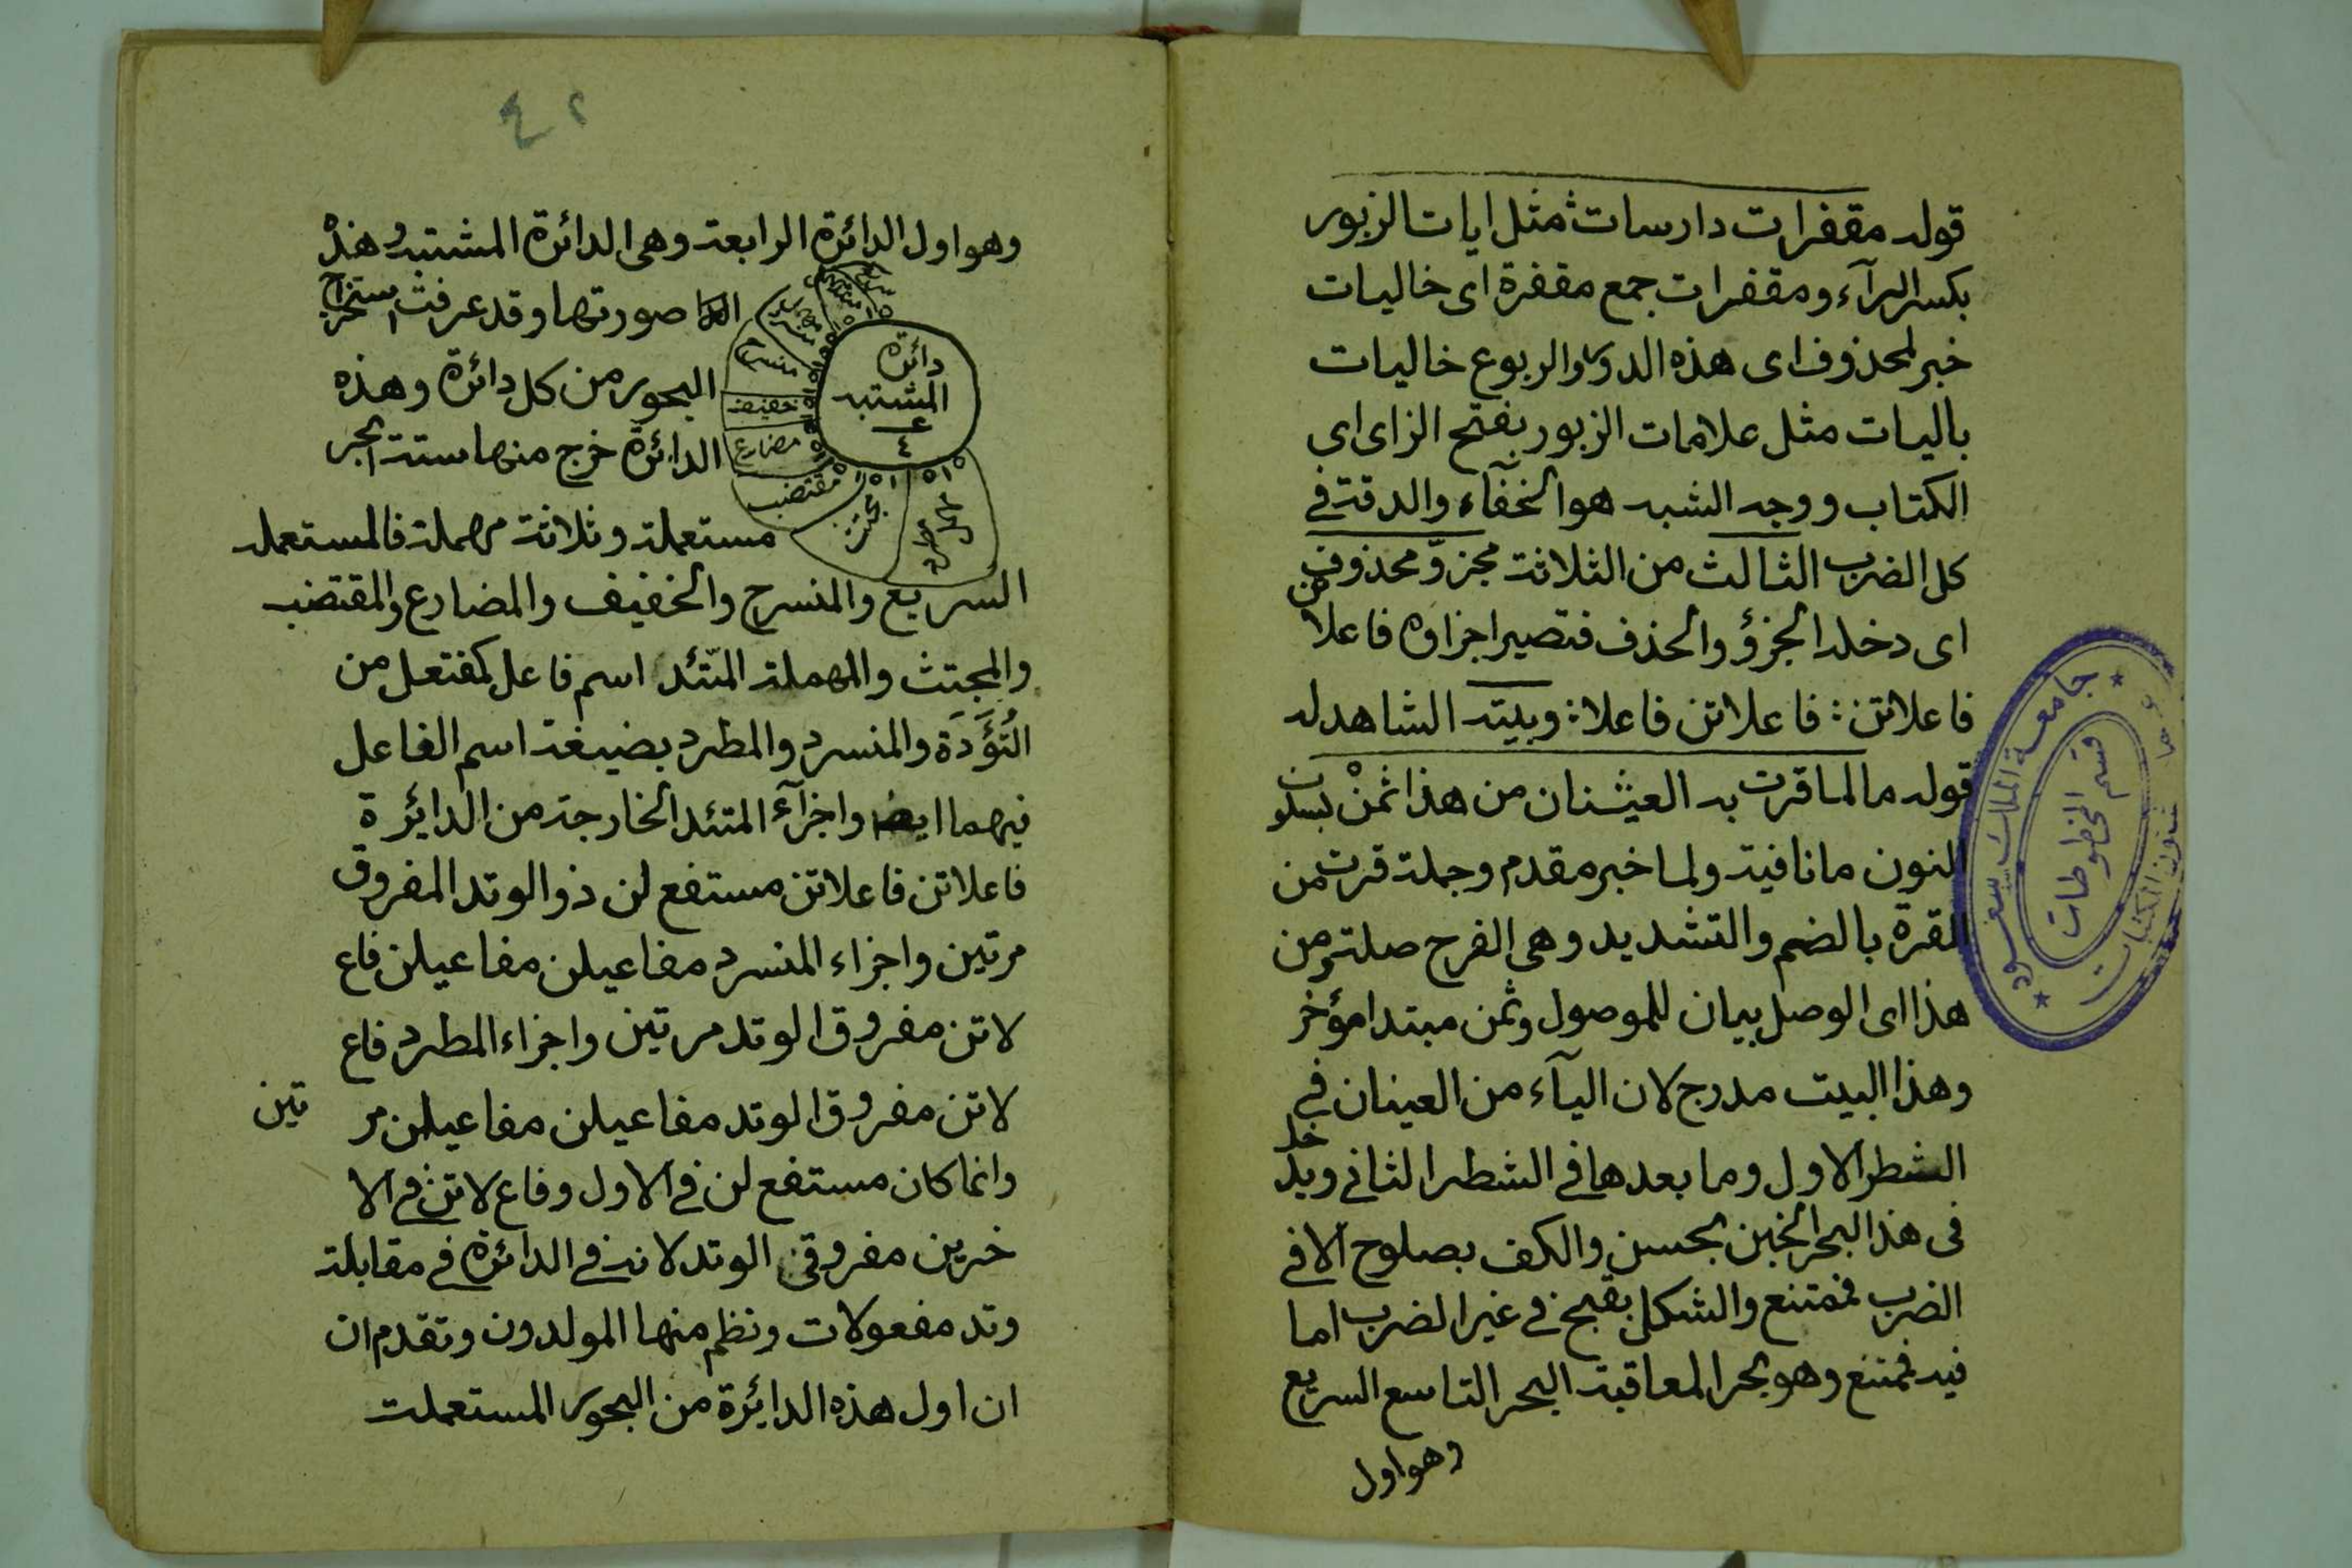 قوله مقفرات دارسات مثل ايات الزبور
بكسر الرآء ومقفرات جمع مقفرة اى خاليات
خبر لمحذوف اى هذه الدور والربوع خاليات
باليات مثل علامات الزبور بفتح الزاى اى
الكتاب ووجه الشبه هو الخفآء والدقة فى
كل الضرب الثالث من الثلاثة مجزوّ محذوف
اى دخله الجزؤ والحذف فتصير اجزاوه فاعلاتن
فاعلاتن : فاعلاتن فاعلا : وبيته الشاهد له
قوله ما لما قرت به العيـنان من هذا ثمنْ بسكون
النون ما نافية ولما خبر مقدم وجملة قرت من
القرة بالضم والتشديد وهى الفرح صلته ومن
هذا اى الوصل بيان للموصول وثمن مبتدا مؤخر
وهذا البيت مدرج لان اليآء من العينان فى
الشطر الاول وما بعدها فى الشطر الثانى ويدخل
فى هذا البحر الخبن بحسن والكف بصلوح الا فى
الضرب فمتنع والشكل بقبح فى غير الضرب اما
فيه فمتنع وهو بحر المعاقبة البحر التاسع السريع
وهو اول
جامعة الملك سعود
قسم المخطوطات
٤٢
وهو اول الدائرة الرابعة وهى الدائرة المشتبه وهذه
صورتها وقد عرفت استخراج
البحور من كل دائرة وهذه
الدائرة خرج منها ستة ابحر
مستعملة وثلاثة مهملة فالمستعمله
السريع والمنسرح والخفيف والمضارع والمقتضب
والمجتث والمهملة المتّئد اسم فاعل كمفتعل من
التُؤَدَة والمنسرد والمطرد بصيغة اسم الفاعل
فيهما ايضا واجزآء المتئد الخارجة من الدايرة
فاعلاتن فاعلاتن مستفع لن ذو الوتد المفروق
مرتين واجزاء المنسرد مفاعيلن مفاعيلن فاع
لاتن مفروق الوتد مرتين واجزاء المطرد فاع
لاتن مفروق الوتد مفاعيلن مفاعيلن مر تين
وانما كان مستفع لن فى الاول وفاع لاتن فى الا
خرين مفروقى الوتد لانه فى الدائرة فى مقابلة
وتد مفعولات ونظم منها المولدون وتقدم ان
ان اول هذه الدايرة من البحور المستعملت
دائرة
المشتبه
٤
منسرح
خفيف
مضارع
مقتضب
مجتث